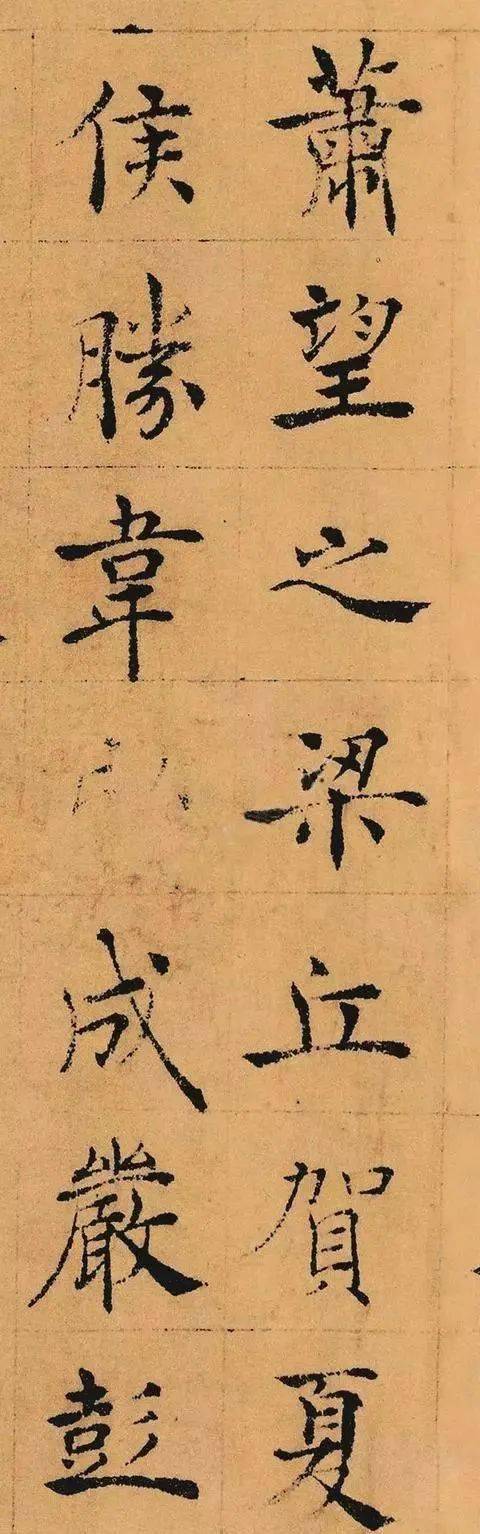 蕭望之梁丘賀夏
侯勝韋成嚴彭